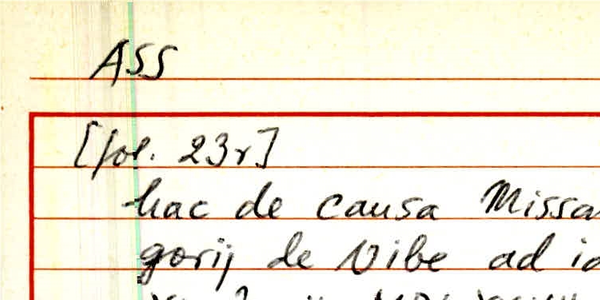 ASS
[fol. 23r]
hac de causa Missa
gorij de Vibe ad id